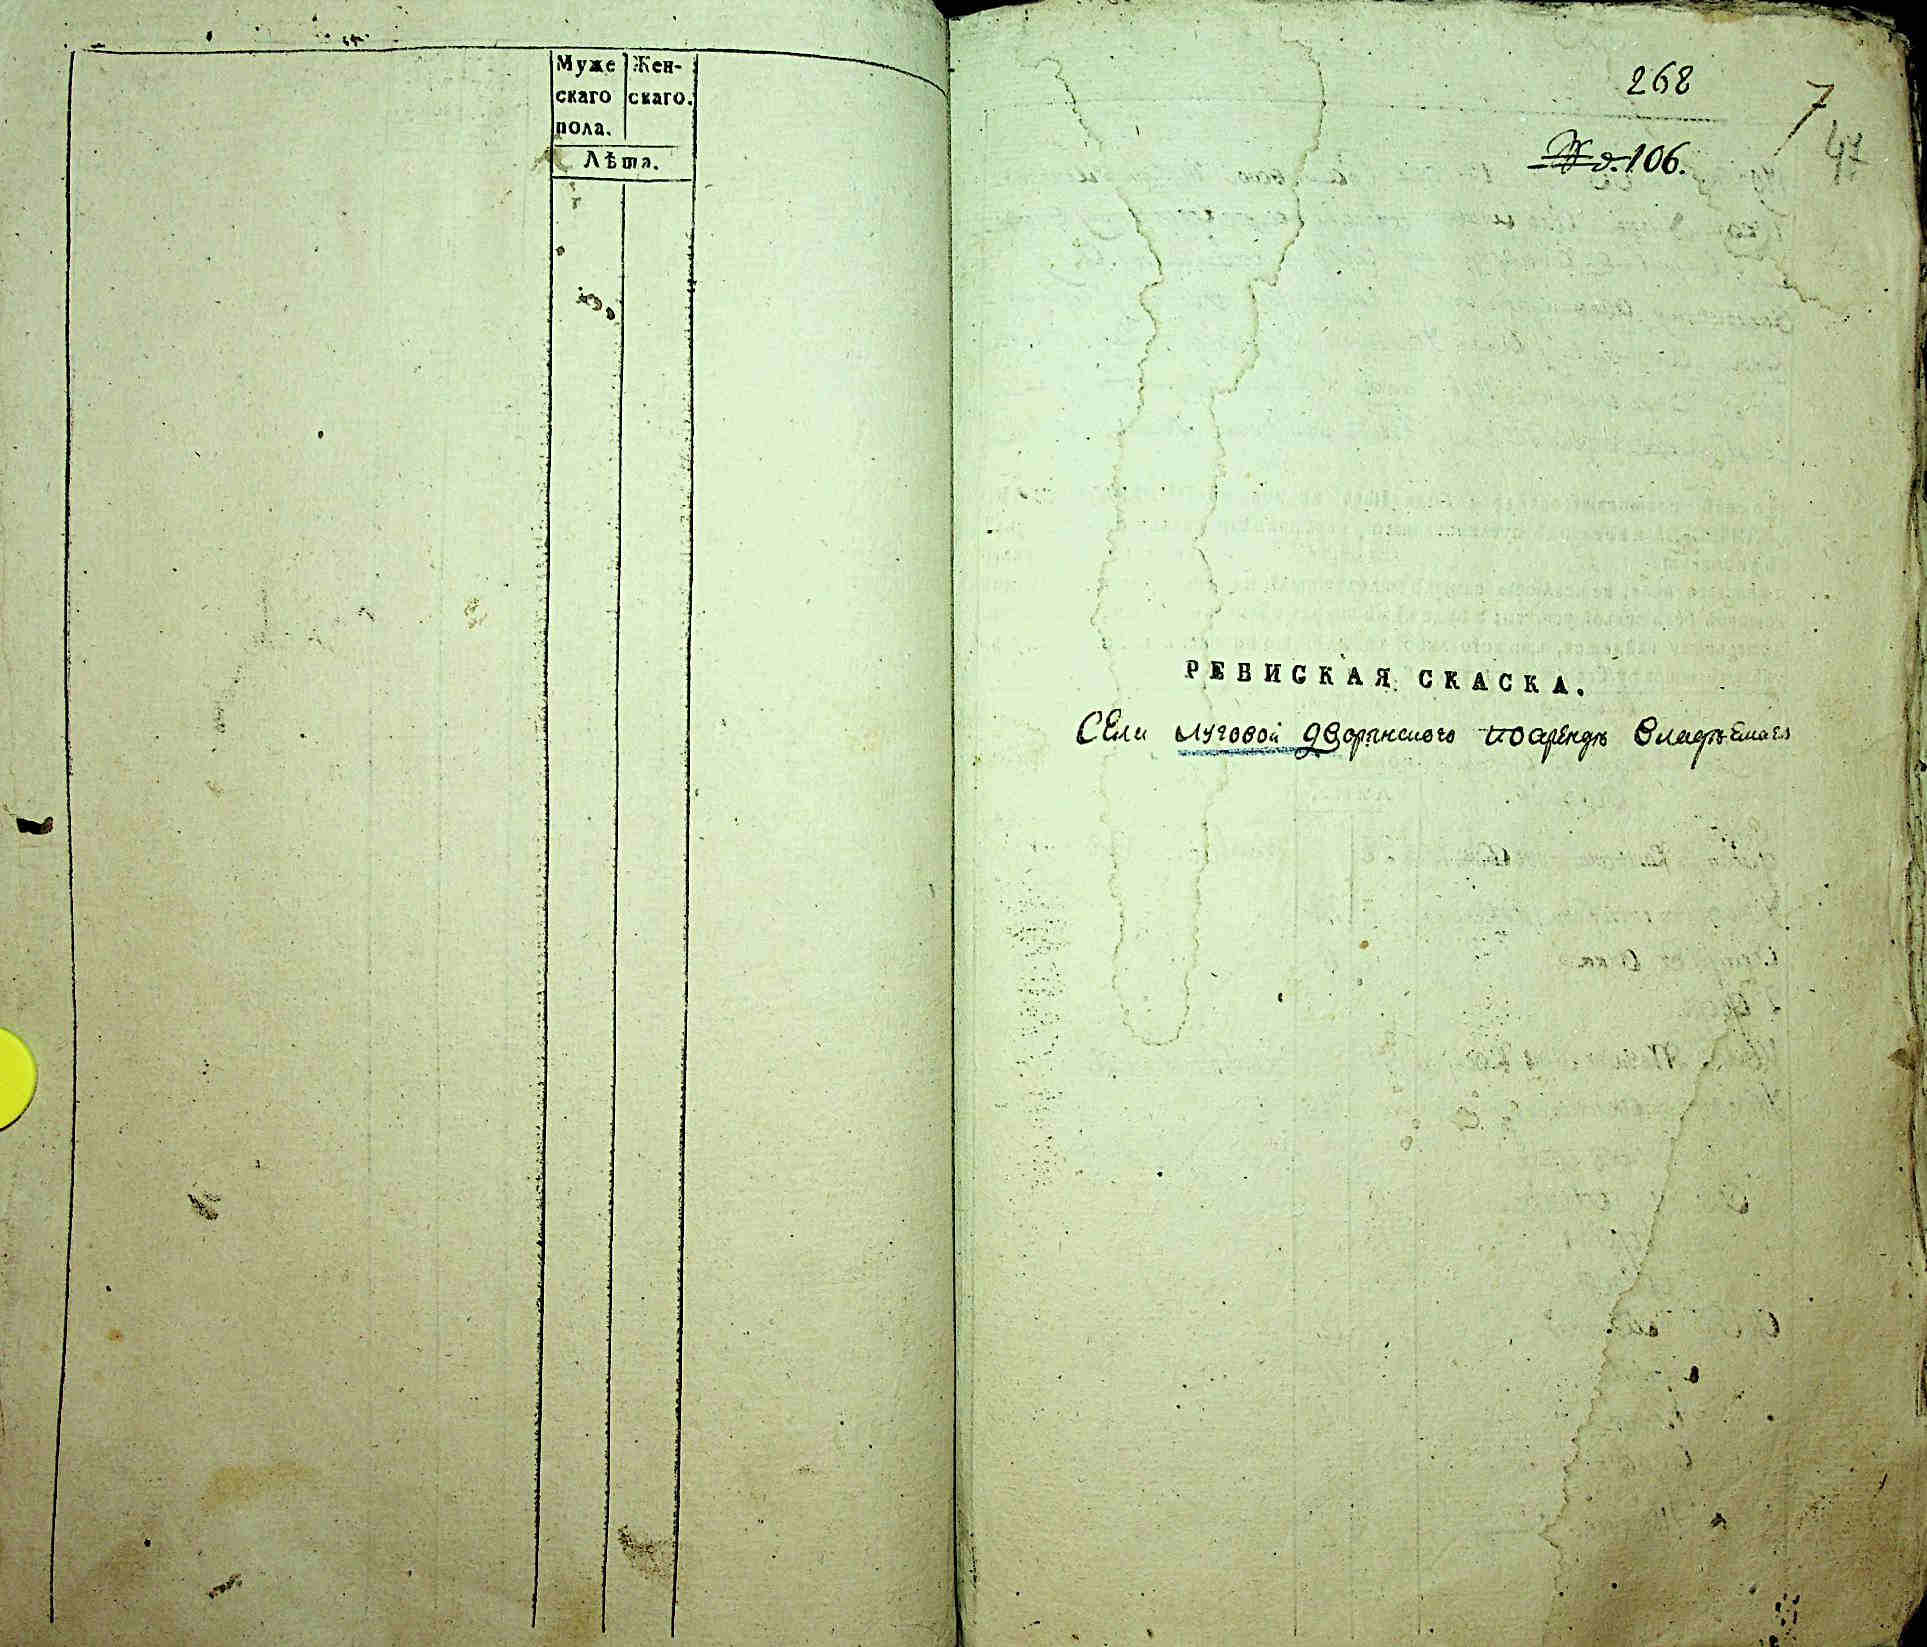 Муже Жен-
скаго скаго.
пола.
Лѣта.
268
7
47
№ 106.
РЕВИСКАЯ СКАСКА.
Сели луговой дворянского поарендѣ владѣемаго